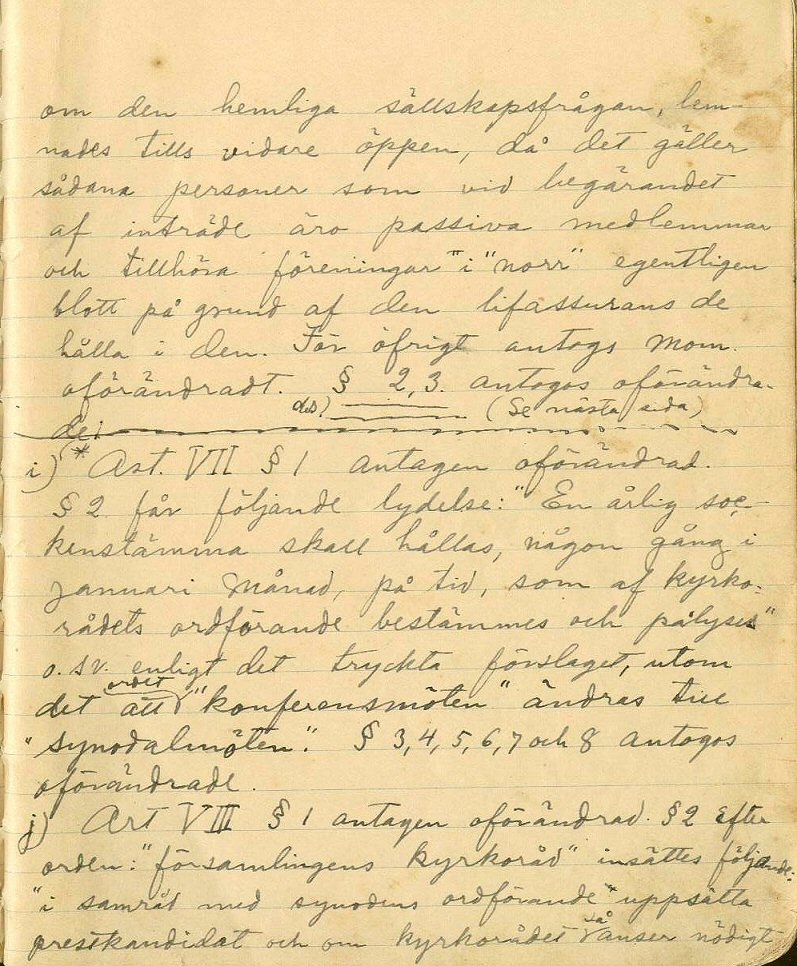 om den hemliga sällskapsfrågan, lem-
nades tills vidare öppen, då det gäller
sådana personer som vid begärandet
af inträde äro passiva medlemmar
och tillhöra föreningar "i "norr" egentligen
blott på grund af den lifassurans de
hålla i den. För öfrigt antogs mom.
oförändradt. § 2, 3. antogos oförändra-
des) (Se nästa sida)
de.
i) * Art. VII § 1 antagen oförändrad.
§ 2 får följande lydelse: "En årlig soc-
kenstämma skall hållas, någon gång i
januari månad, på tid, som af kyrko-
rådets ordförande bestämmes och pålyses"
o. sv. enligt det tryckta förslaget, utom
ordet
det att "konferensmöten" ändras till
"synodalmöten". § 3, 4, 5, 6, 7 och 8 antogos
oförändrade.
j) Art VIII § 1 antagen oförändrad. § 2 Efter
orden: "församlingens kyrkoråd" insättes följande:
"i samråd med synodens ordförande" uppsätta
så
prestkandidat och om kyrkorådet anser nödigt